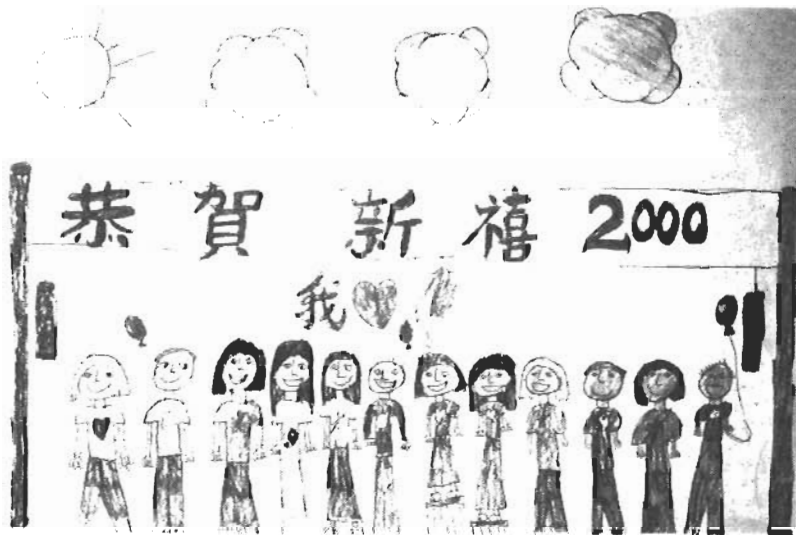 恭賀 新禧 2000
我